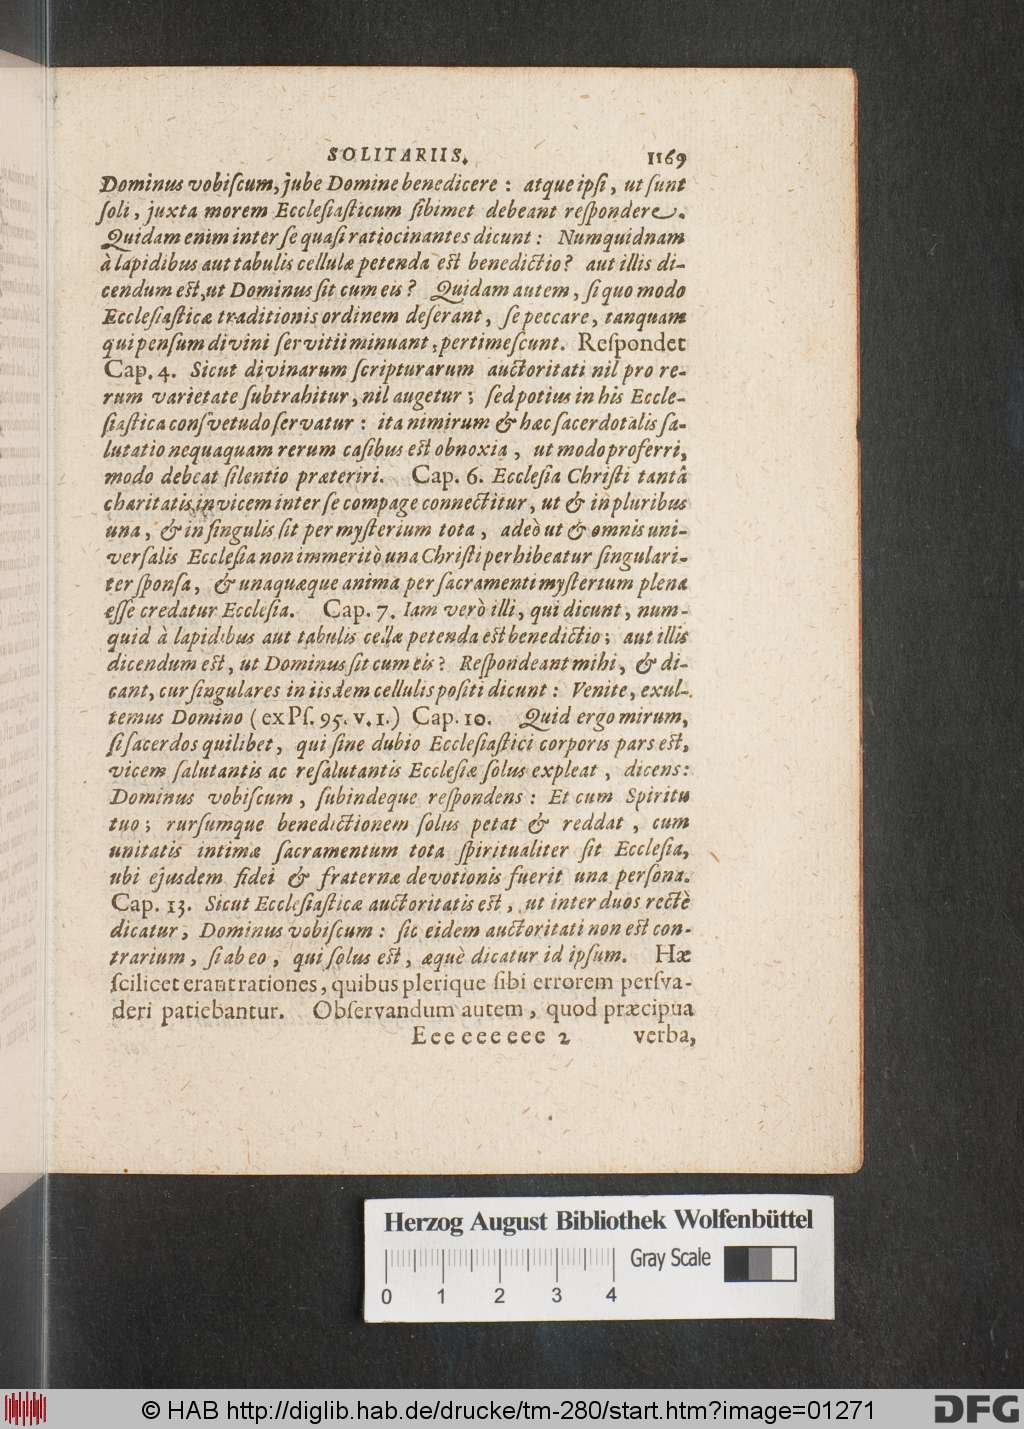 SOLITARIIS. 1169
Dominus vobiſcum, jube Domine benedicere : atque ipſi, ut ſunt
ſoli, juxta morem Eccleſiaſticum ſibimet debeant reſpondere.
Quidam enim inter ſe quaſi ratiocinantes dicunt : Numquidnam
à lapidibus aut tabulis cellulæ petenda eſt benedictio? aut illis di-
cendum eſt, ut Dominus ſit cum eis? Quidam autem, ſi quo modo
Eccleſiaſticæ traditionis ordinem deſerant, ſe peccare, tanquam
qui penſum divini ſervitii minuant, pertimeſcunt. Reſpondet
Cap. 4. Sicut divinarum ſcripturarum auctoritati nil pro re-
rum varietate ſubtrahitur, nil augetur; ſed potius in his Eccle-
ſiaſtica conſvetudo ſervatur : ita nimirum & hæc ſacerdotalis ſa-
lutatio nequaquam rerum caſibus eſt obnoxia, ut modo proferri,
modo debeat ſilentio præteriri. Cap. 6. Eccleſia Chriſti tantâ
charitatis invicem inter ſe compage connectitur, ut & in pluribus
una, & in ſingulis ſit per myſterium tota, adeò ut & omnis uni-
verſalis Eccleſia non immeritò una Chriſti perhibeatur ſingulari-
ter ſponſa, & unaquæque anima per ſacramenti myſterium plena
eſſe credatur Eccleſia. Cap. 7. Iam verò illi, qui dicunt, num-
quid à lapidibus aut tabulis cellæ petenda eſt benedictio; aut illis
dicendum eſt, ut Dominus ſit cum eis? Reſpondeant mihi, & di-
cant, cur ſingulares in iisdem cellulis poſiti dicunt : Venite, exul-
temus Domino (ex Pſ. 95. v. 1.) Cap. 10. Quid ergo mirum,
ſi ſacerdos quilibet, qui ſine dubio Eccleſiaſtici corporis pars eſt,
vicem ſalutantis ac reſalutantis Eccleſiæ ſolus expleat, dicens:
Dominus vobiſcum, ſubindeque reſpondens : Et cum Spiritu
tuo; rurſumque benedictionem ſolus petat & reddat, cum
unitatis intimæ ſacramentum tota ſpiritualiter ſit Eccleſia,
ubi ejusdem fidei & fraternæ devotionis fuerit una perſona.
Cap. 13. Sicut Eccleſiaſticæ auctoritatis eſt, ut inter duos rectè
dicatur, Dominus vobiſcum : ſic eidem auctoritati non eſt con-
trarium, ſi ab eo, qui ſolus eſt, æquè dicatur id ipſum. Hæ
ſcilicet erant rationes, quibus plerique ſibi errorem perſva-
deri patiebantur. Obſervandum autem, quod præcipua
Eee eee eee 2 verba,
Herzog August Bibliothek Wolfenbüttel
Gray Scale
0 1 2 3 4
© HAB http://diglib.hab.de/drucke/tm-280/start.htm?image=01271
DFG